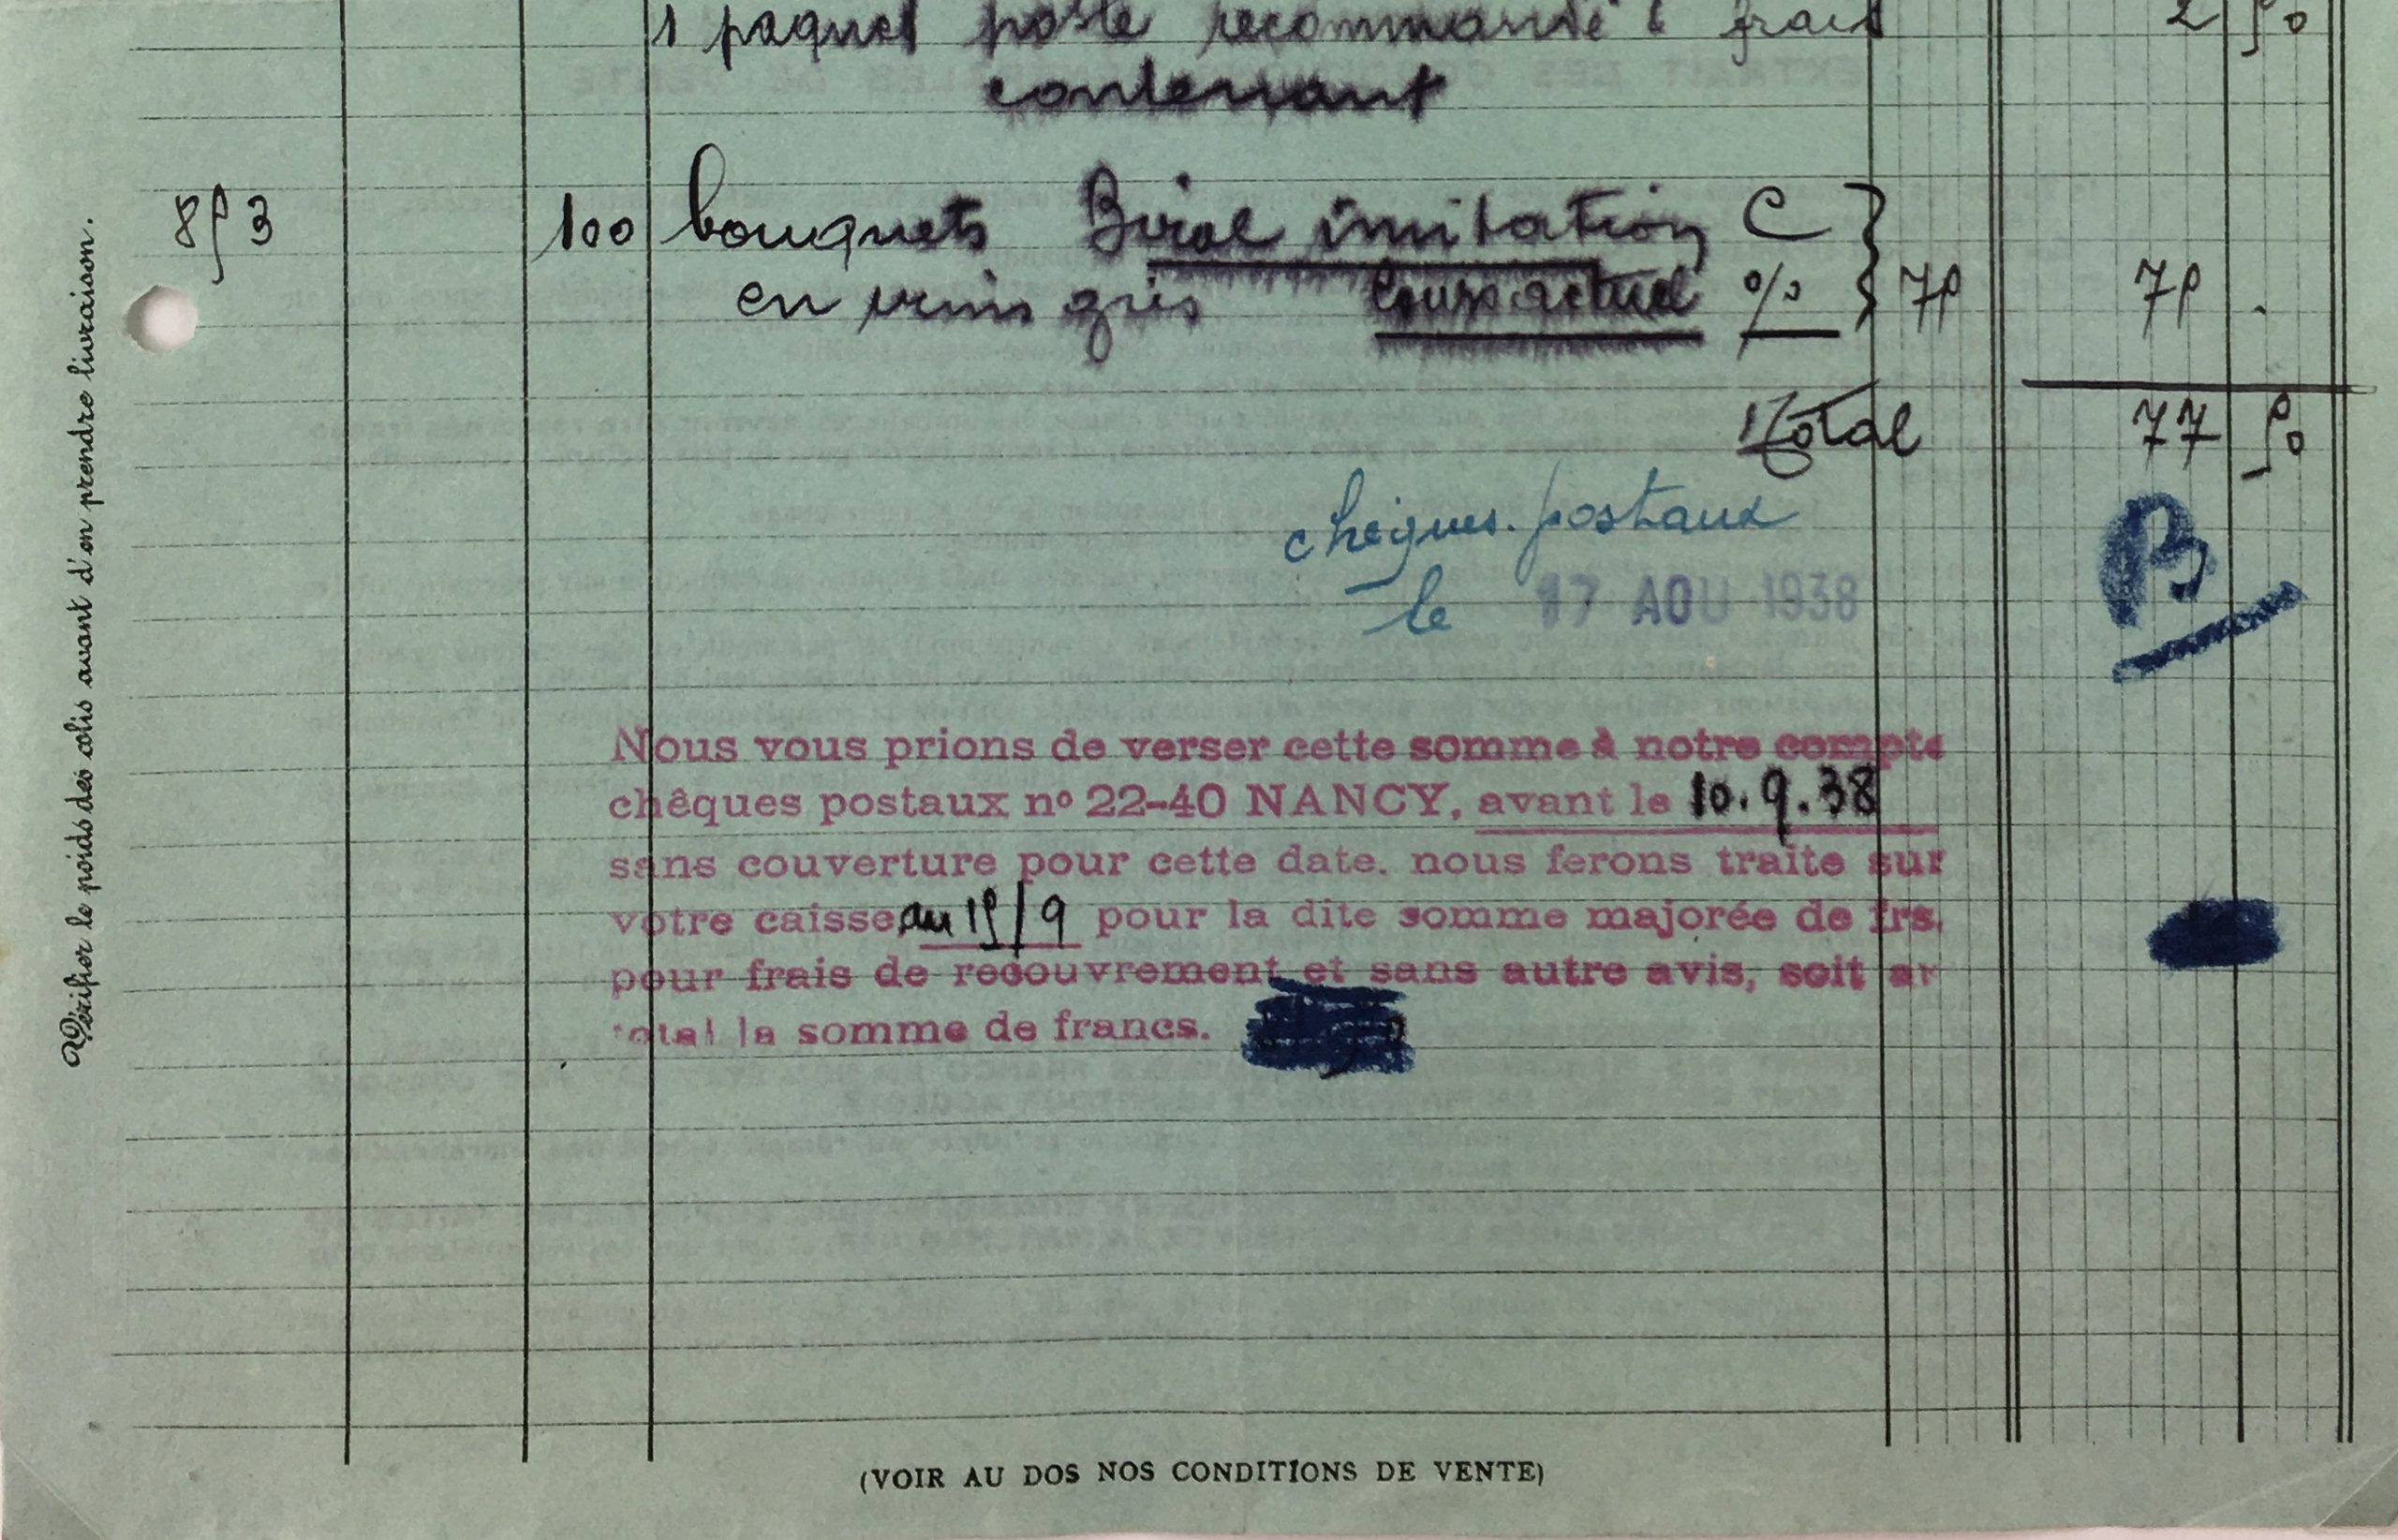 1 paquet poste recommandé & frais 2 50
contenant
853 100 bouquets imitation C
en vrins gris Cours actuel % 75 75 .
Total 77 50
chèques postaux
le 17 AOU 1938
B
Nous vous prions de verser cette somme à notre compte
chêques postaux nº 22-40 NANCY, avant le 10.9.38
sans couverture pour cette date. nous ferons traite sur
votre caisse, au 15/9 pour la dite somme majorée de frs.
pour frais de recouvrement et sans autre avis, soit au
total la somme de francs.
(VOIR AU DOS NOS CONDITIONS DE VENTE)
Vérifier le poids des colis avant d'en prendre livraison.